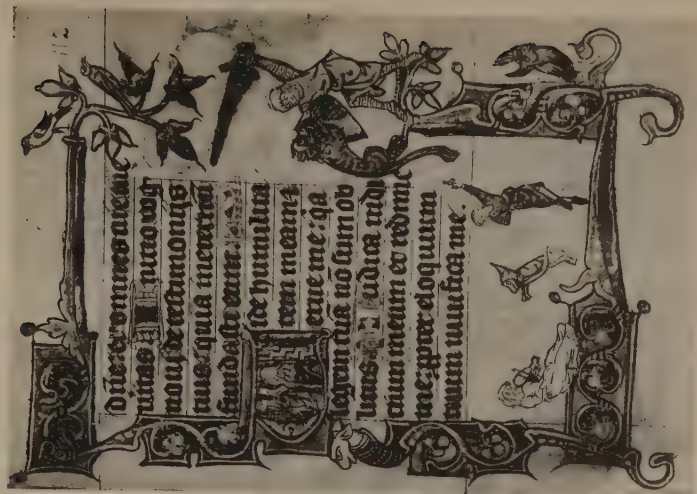 dñe et omnes uie tue
ueritas nitio cog
noui de testimoniis
tuis quia in eternũ
fundasti ea
ide humilita
tem meam
eripe me: q̃a
legem tuã nõ sum ob
litus udica iudi
cium meum et redime
me: ppter eloquium
tuum uiuifica me.